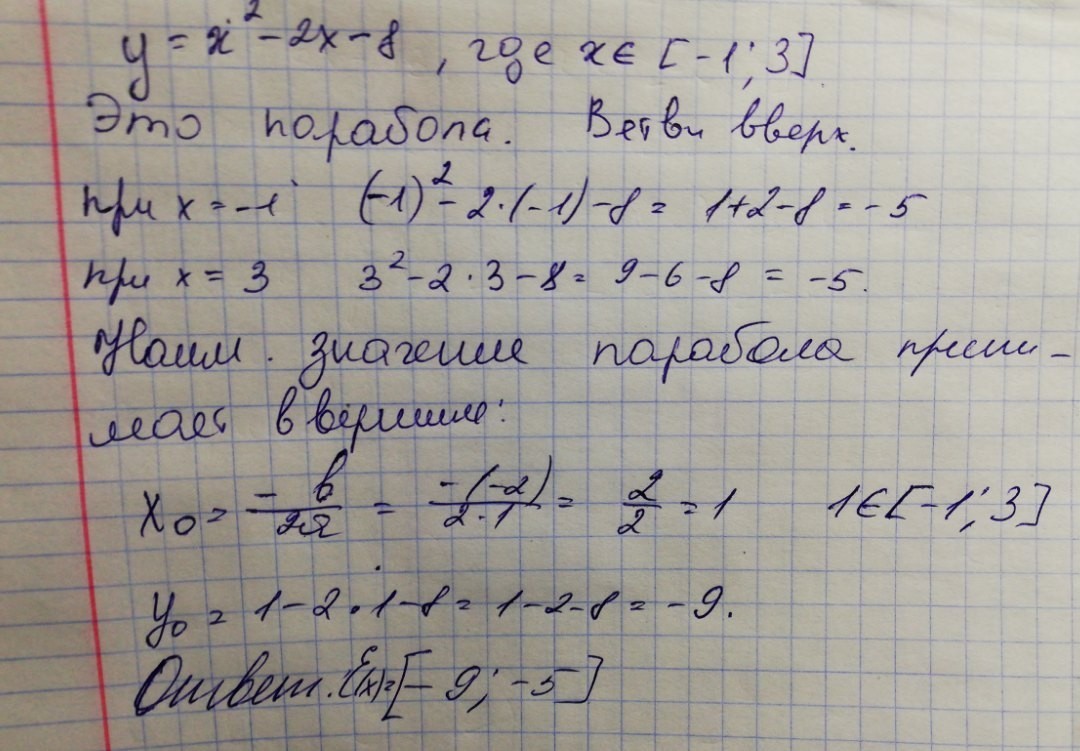 y = x² - 2x - 8 , где x ∈ [-1; 3]
Это парабола. Ветви вверх.
при x = -1 (-1)² - 2·(-1) - 8 = 1+2-8 = -5
при x = 3 3² - 2·3 - 8 = 9-6-8 = -5.
Наим. значение парабола прини-
мает в вершине:
x₀ = -b/2a = -(-2)/2·1 = 2/2 = 1 1∈[-1; 3]
y₀ = 1-2·1-8 = 1-2-8 = -9.
Ответ. E(x)=[-9; -5]